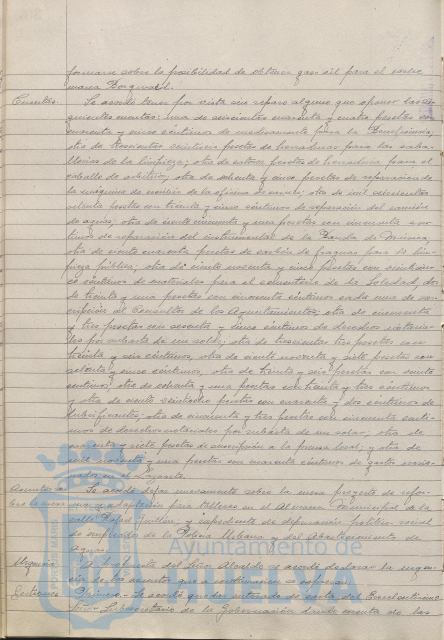 formara sobre la posibilidad de obtener gas-oil para el coche
marca Borgward.
Cuentas. Se acordó tener por vista sin reparo alguno que oponer las si-
guientes cuentas: una de seiscientas cuarenta y cuatro pesetas con
cuarenta y cinco céntimos de medicamentos para la Beneficencia;
otra de trescientas pesetas de herraduras para las caba-
llerías de la limpieza; otra de catorce pesetas de herraduras para el
caballo de arbitrios; otra de ochenta y cinco pesetas de reparación de
la máquina de escribir de la oficina de; otra de mil doscientas
ochenta pesetas con treinta y cinco céntimos de reparación del camión
de aguas; otra de ciento cincuenta y una pesetas con cincuenta cén-
timos de reparación del instrumental de la Banda de Música;
otra de ciento cincuenta pesetas de carbón de fraguas para la lim-
pieza pública; otra de ciento noventa y cinco pesetas con
céntimos de materiales para el cementerio de la Soledad; dos
de treinta y una pesetas con cincuenta céntimos cada una de sus-
cripción al Consultor de los Ayuntamientos; otra de cincuenta
y tres pesetas con sesenta y cinco céntimos de derechos notaria-
les por subasta de un solar; otra de trescientas tres pesetas con
treinta y seis céntimos; otra de ciento noventa y siete pesetas con
ochenta y cinco céntimos; otra de treinta y seis pesetas con veinte
céntimos; otra de ochenta y una pesetas con treinta y tres céntimos
y otra de ciento veintiocho pesetas con cuarenta y dos céntimos de
lubrificantes; otra de cincuenta y tres pesetas con cincuenta cénti-
mos de derechos notariales por subasta de un solar; otra de
cuarenta y siete pesetas de suscripción a la prensa local; y otra de
y una pesetas con cuarenta céntimos de gastos ocasio-
nados en el Lazareto.
Asuntos Se acordó dejar nuevamente sobre la mesa proyecto de refor-
ma y adaptación para talleres en el Almacén Municipal de la
calle Rafael Guillén, y expediente de depuración político social
de empleados de la Policía Urbana y del Abastecimiento de
Aguas.
Urgencia A propuesta del Señor Alcalde se acordó declarar la urgen-
cia de los asuntos que a continuación se expresan.
Gestiones Primero.- Se acordó quedar enterado de carta del Excelentísimo
Señor Subsecretario de la Gobernación dando cuenta de las
Ayuntamiento de